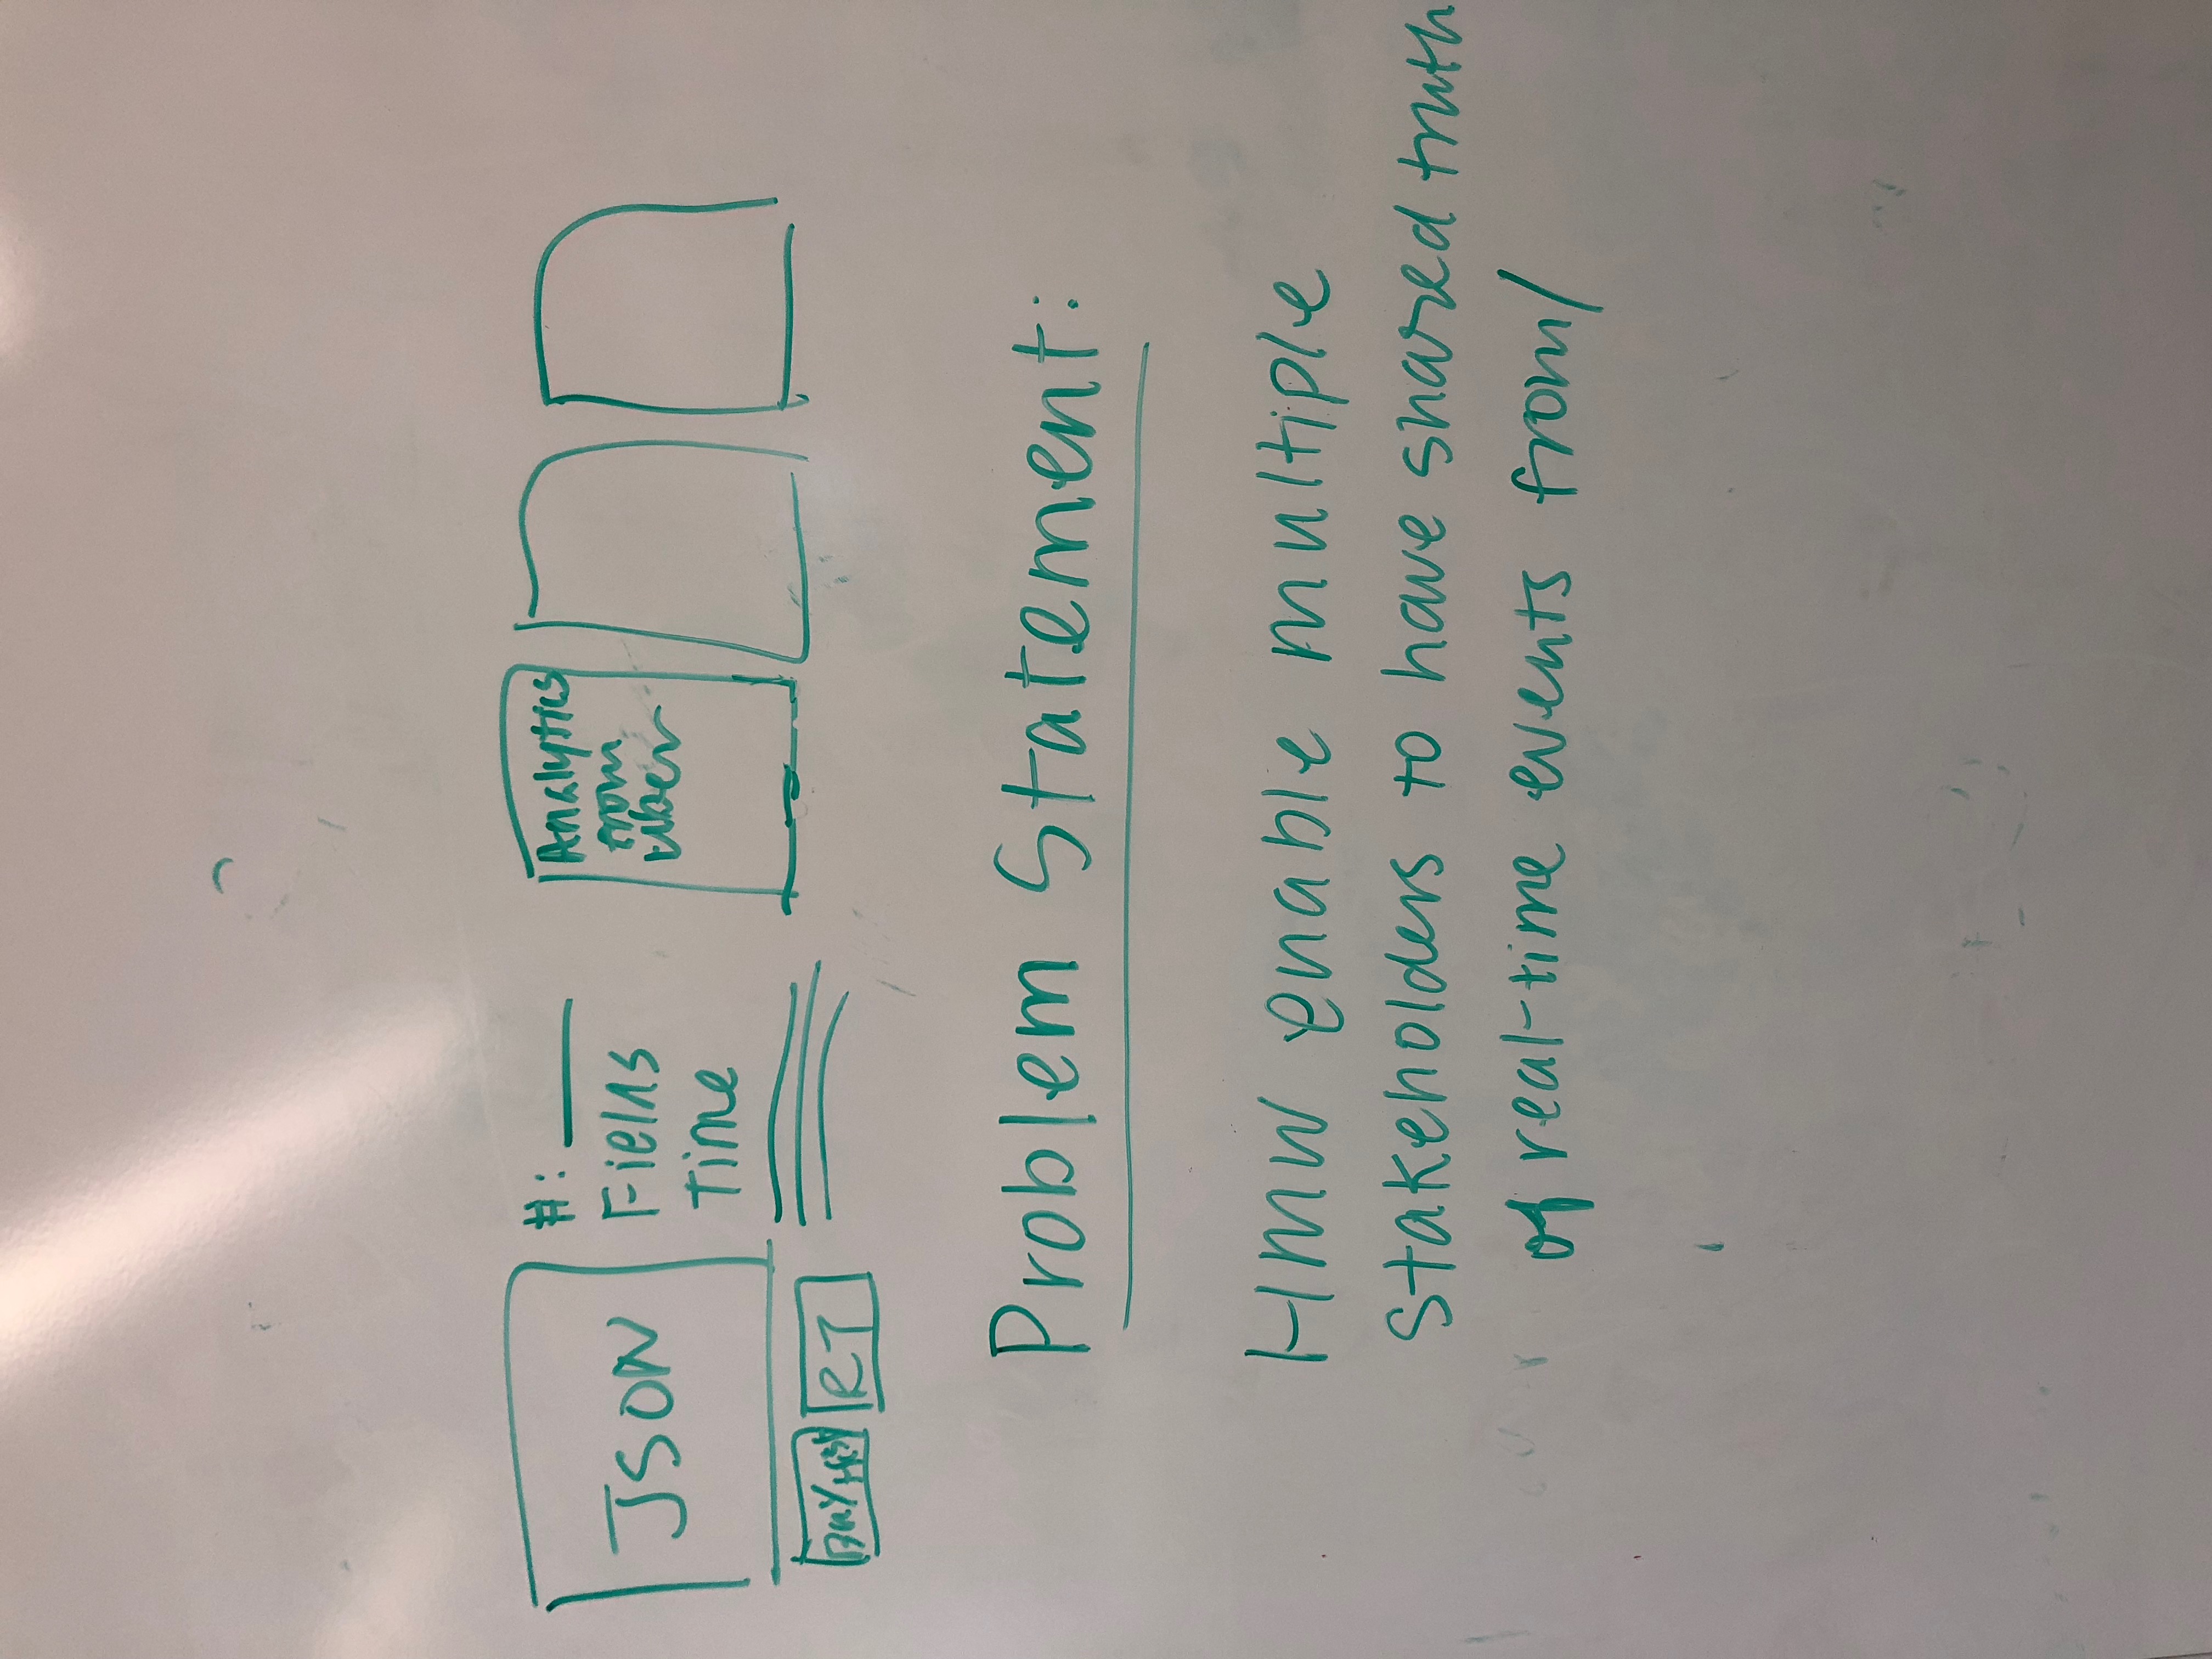 JSON
#:
Fields
Time
RT
Analytics
from
Uber
Problem Statement:
HMW enable multiple
stakeholders to have shared truth
of real-time events from/